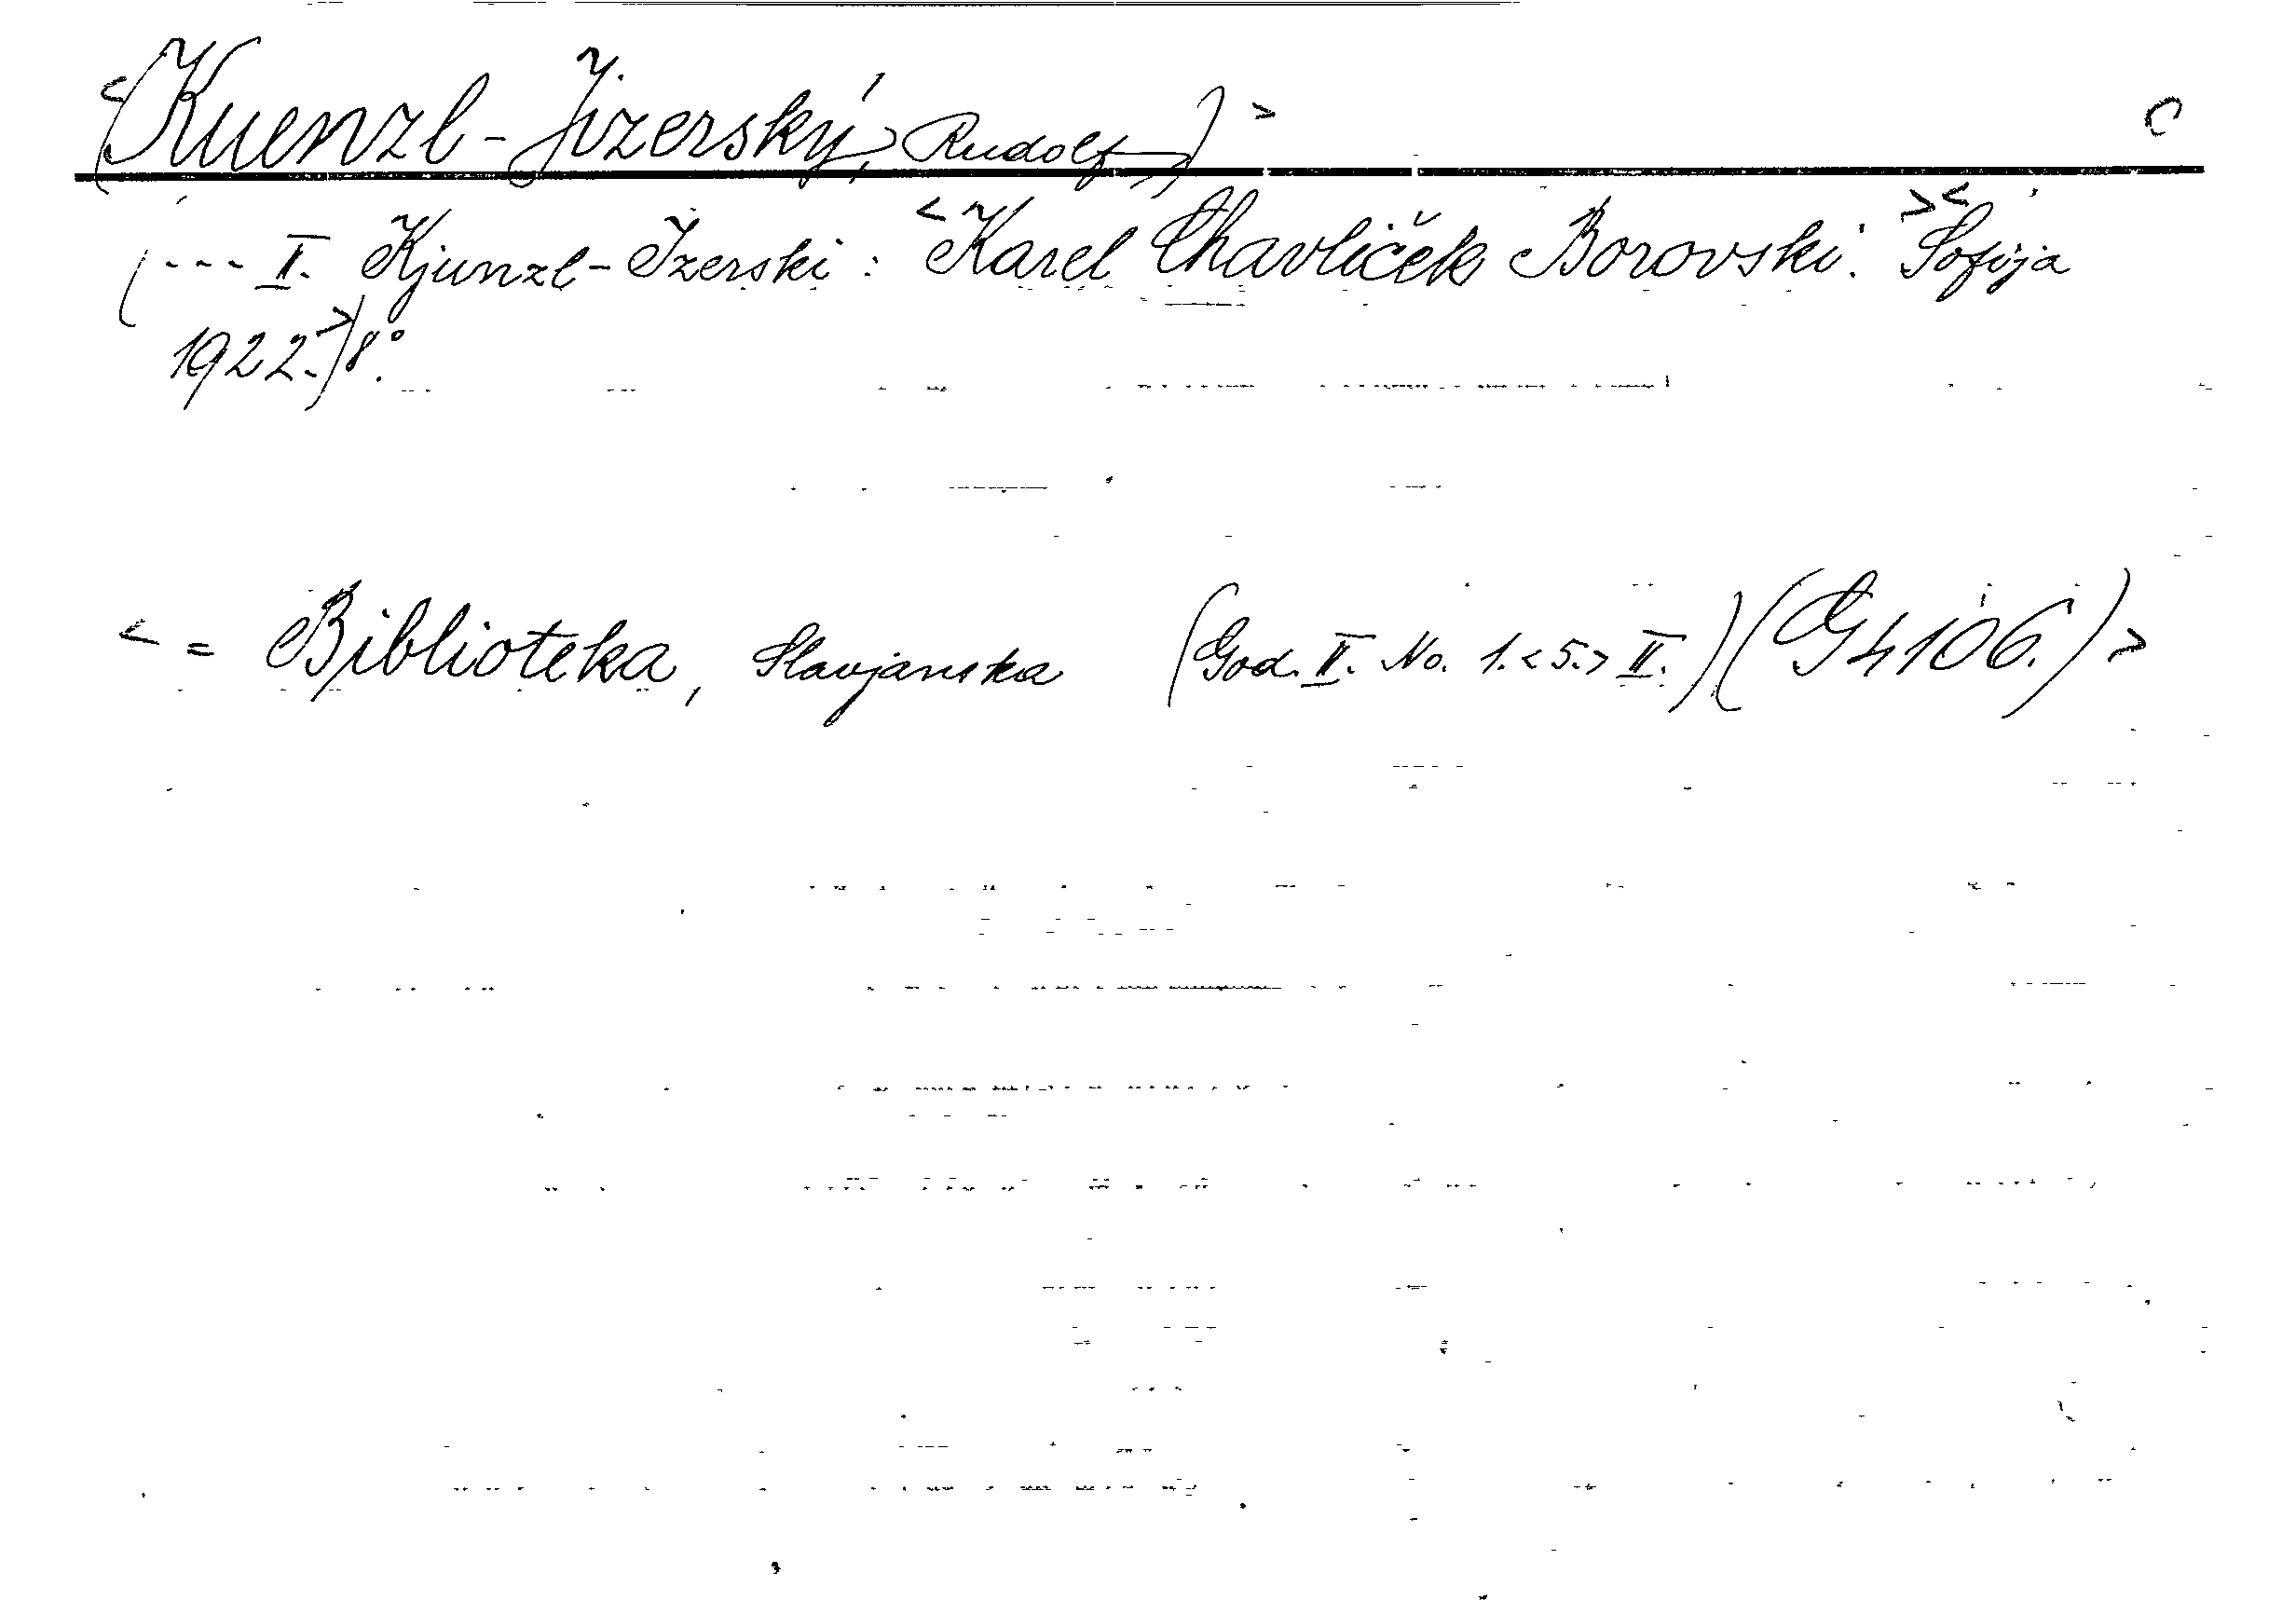 <(Kuenzl-Jizerský, Rudolf)> C
(--- I. Kjunzl-Izerski: <Karel Chavliček Borovski. >< Sofija
1922.>) 8°.
< = Biblioteka, Slavjanska (God. II. No. 1.<5.> II.) (G 4106.) >